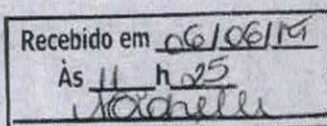 Recebido em 06/06/14
Às 11 h 25